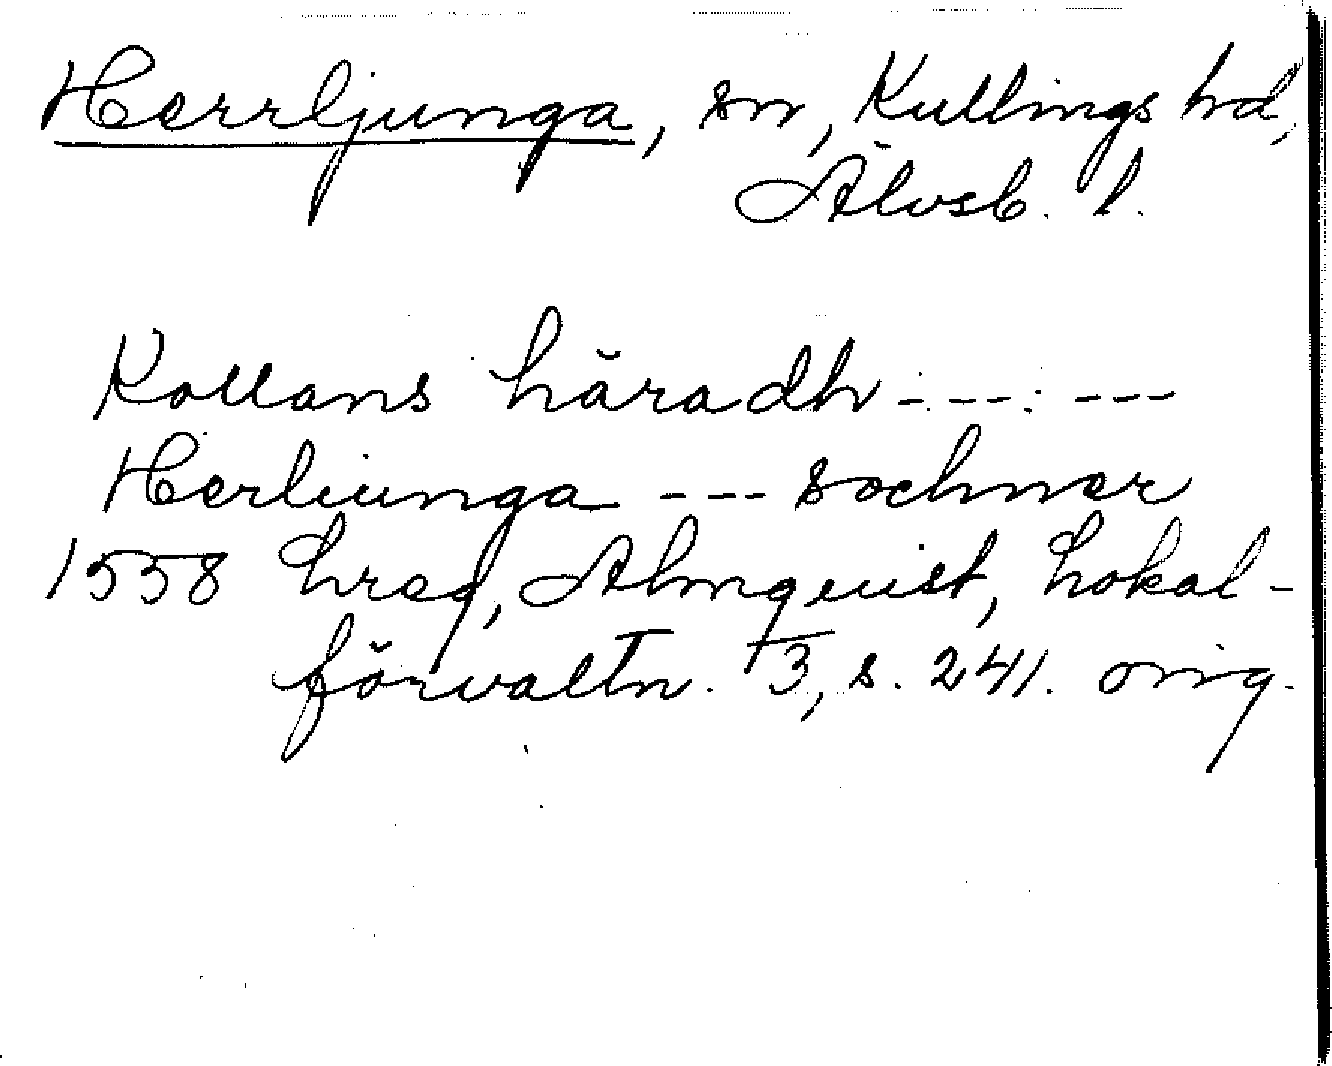 Herrljunga, sn, Kullings hd,
Älvsb. l.
Kollans häradh --- ---
Herliunga --- sochner
1558 hreg, Almquist, Lokal-
förvaltn. 3, s. 241. orig.